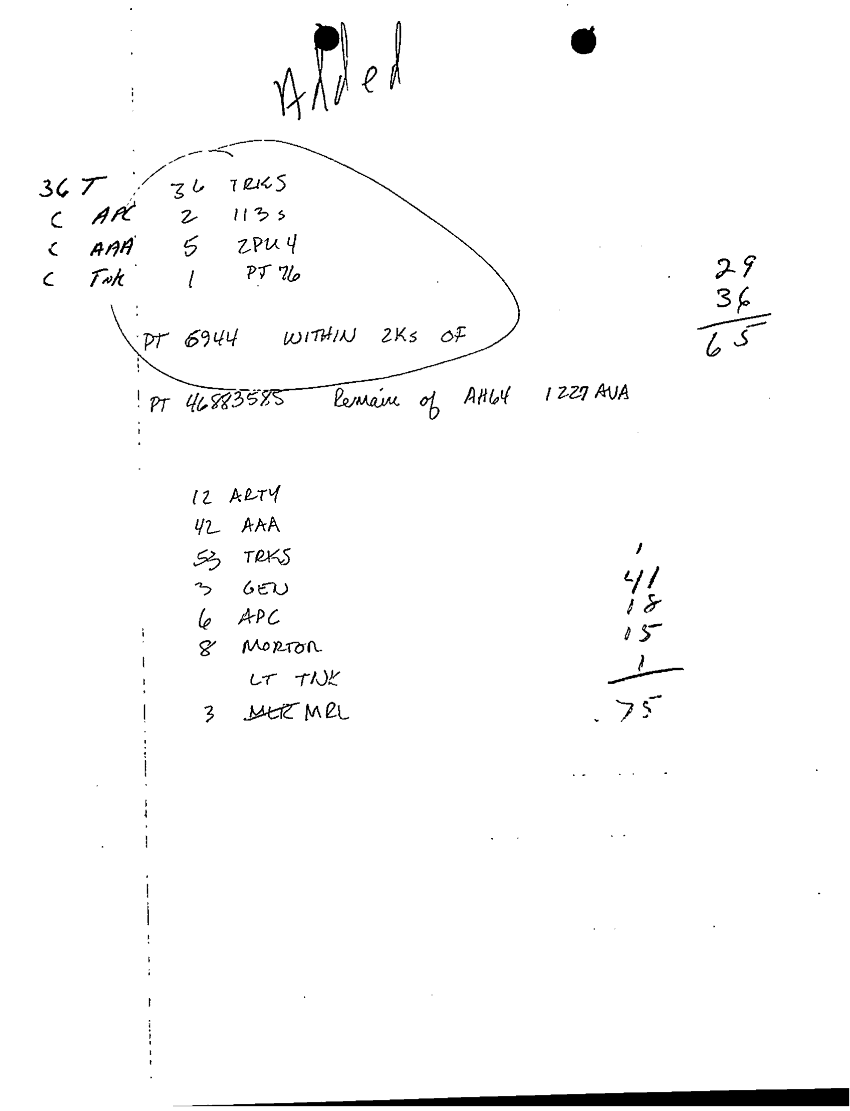 Added
36 T 36 TRKS
C APC 2 113s
C AAA 5 ZPU 4
C Tnk 1 PT 76
29
36
65
PT 6944 WITHIN 2Ks OF
PT 46883585 Remains of AH64 1 227 AVA
12 ARTY
42 AAA
53 TRKS
3 GEN
6 APC
8 MORTOR
LT TNK
3 MLR MRL
1
41
18
15
1
75